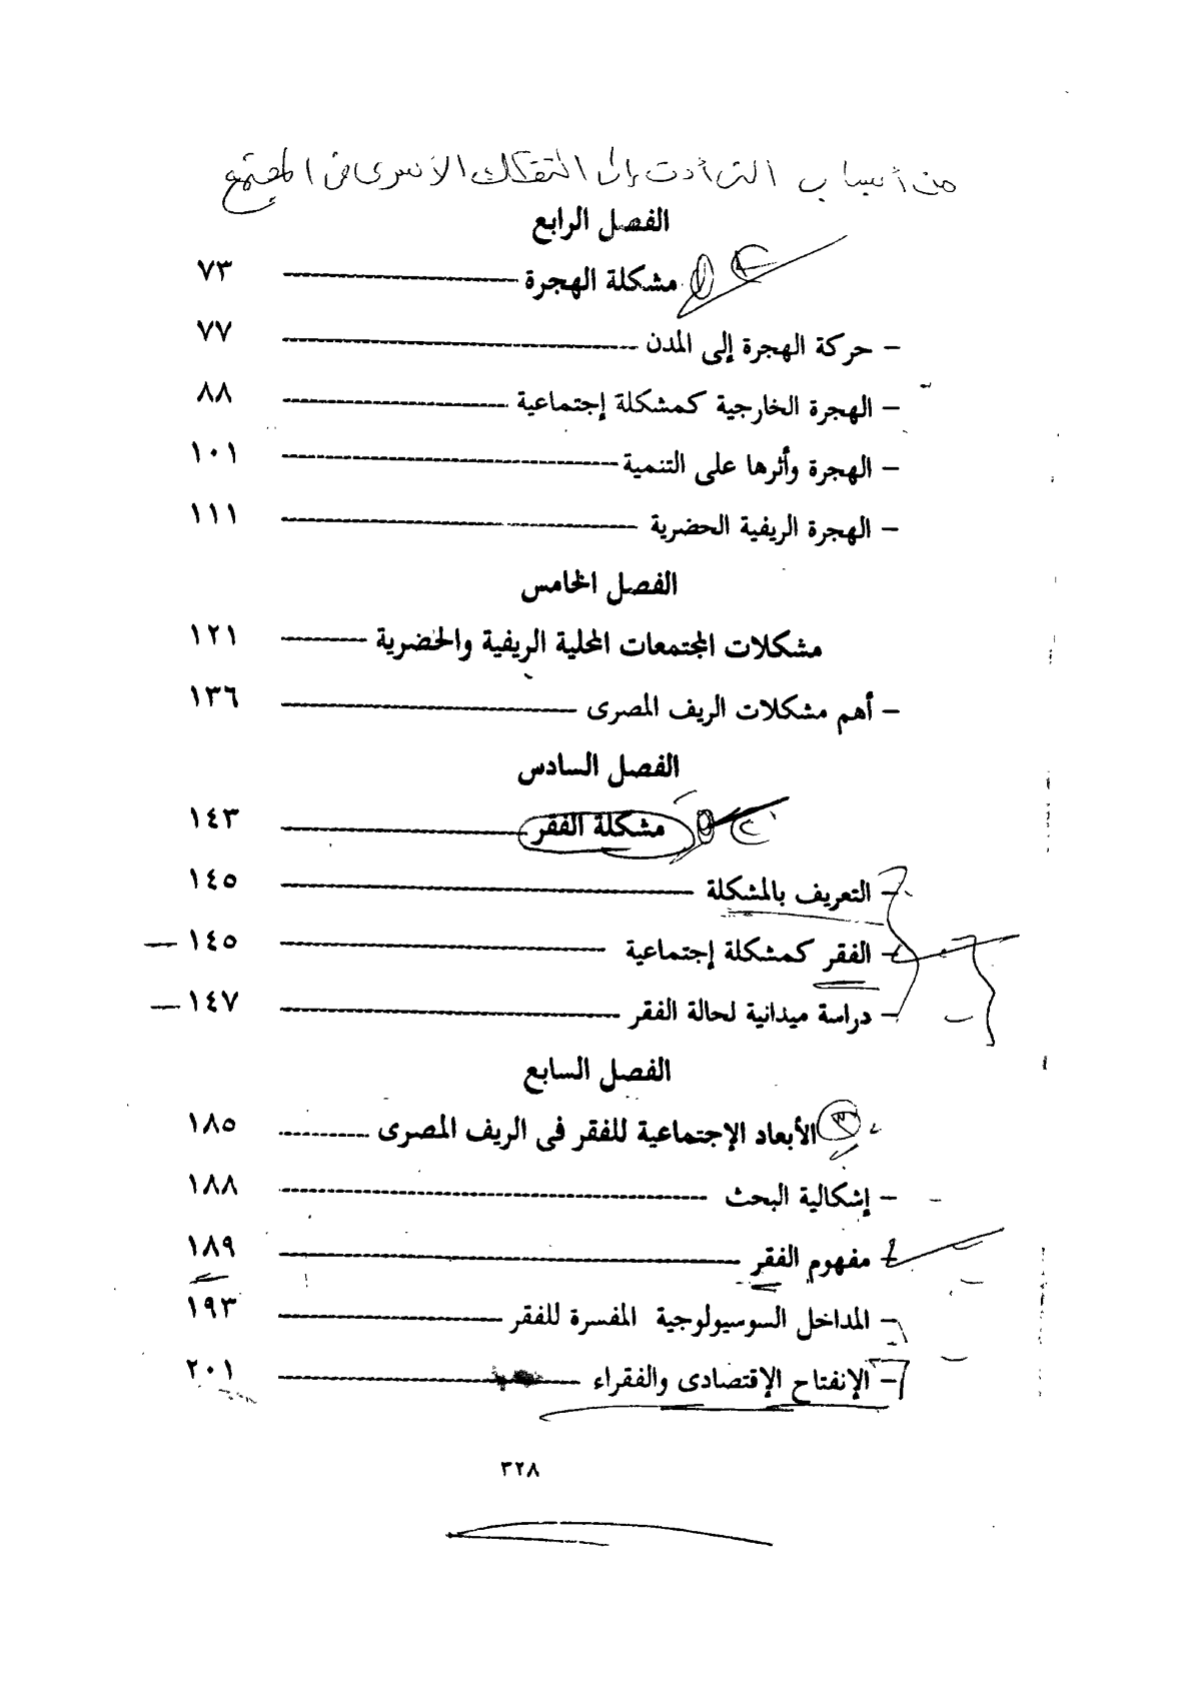 من أسباب التى أدت إلى التفكك الأسرى فى المجتمع
الفصل الرابع
مشكلة الهجرة ٧٣
- حركة الهجرة إلى المدن ٧٧
- الهجرة الخارجية كمشكلة إجتماعية ٨٨
- الهجرة وأثرها على التنمية ١٠١
- الهجرة الريفية الحضرية ١١١
الفصل الخامس
مشكلات المجتمعات المحلية الريفية والحضرية ١٢١
- أهم مشكلات الريف المصرى ١٣٦
الفصل السادس
مشكلة الفقر ١٤٣
- التعريف بالمشكلة ١٤٥
- الفقر كمشكلة إجتماعية ١٤٥
- دراسة ميدانية لحالة الفقر ١٤٧
الفصل السابع
الأبعاد الإجتماعية للفقر فى الريف المصرى ١٨٥
- إشكالية البحث ١٨٨
- مفهوم الفقر ١٨٩
- المداخل السوسيولوجية المفسرة للفقر ١٩٣
- الإنفتاح الإقتصادى والفقراء ٢٠١
٣٢٨